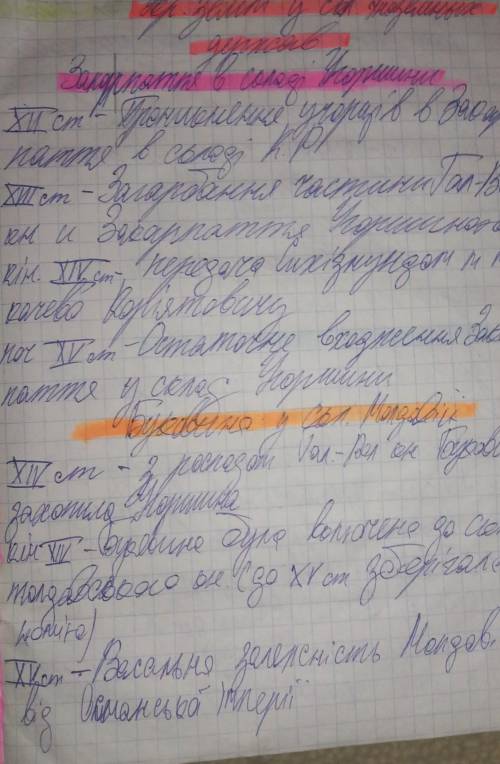 Укр. землі у скл. іноземних
держав
Закарпаття в складі Угорщини
XII ст - Проникнення угорців в Закар
паття в складі К.Р
XIII ст - Загарбання частини Гал-В
кн и Закарпаття Угорщиною
кін. XIV ст - передача Сихізмундом м
качево Корʼятовичу
поч XV ст - Остаточне входження Зака
паття у склад Угорщини
Буковина у скл. Молдавії
XIV ст - З розпадом Гал-Вол кн Буков
захопила Угорщина
кін XIV - Буковина була включена до скл
молдавського кн. (до XV ст зберігала
номію)
XV ст - Васальна залежність Молдав
від Османської імперії